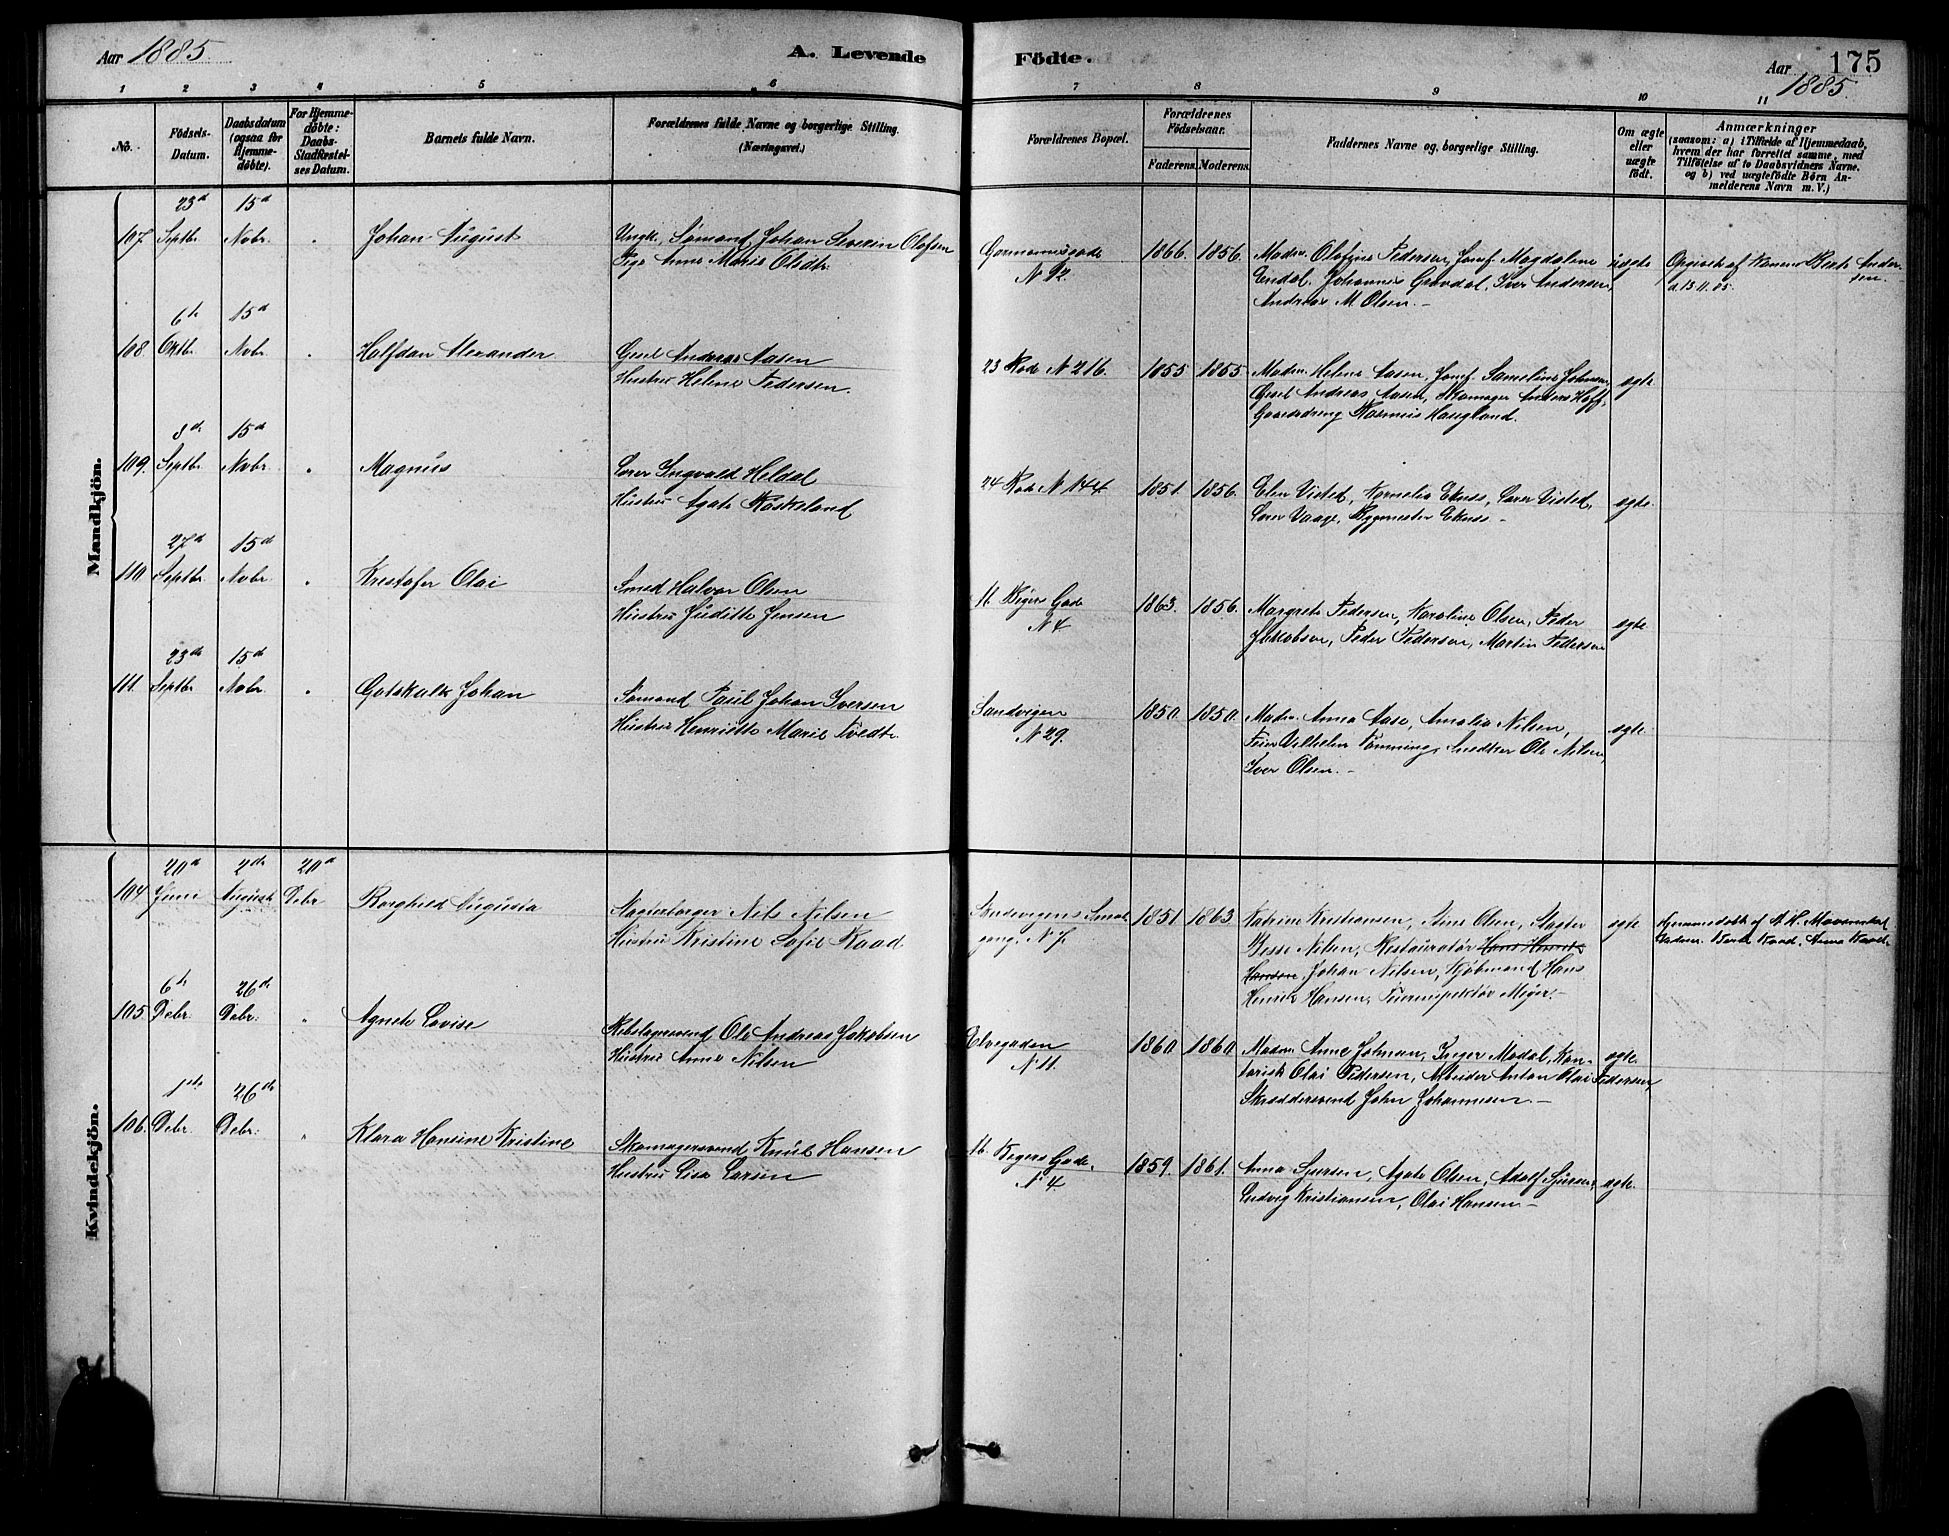 Aar 1885
A. Levende
Födte.
175
Aar 1885.
1 2 3 4 5 6 7 8 9 10 11
No.
Födsels-
Datum.
Daabsdatum
(ogsaa for
Hjemme-
døbte).
For Hjemme-
døbte:
Daabs-
Stadfæstel-
ses Datum.
Barnets fulde Navn.
Forældrenes fulde Navne og borgerlige Stilling.
(Næringsvei.)
Forældrenes Bopæl.
Forældrenes
Födselsaar.
Faderens. Moderens.
Faddernes Navne og borgerlige Stilling.
Om ægte
eller
uægte
født.
Anmærkninger
(saasom: a) i Tilfælde af Hjemmedaab,
hvem der har forrettet samme, med
Tilføielse af to Daabsvidners Navne,
og b) ved uægtefödte Börn An-
melderens Navn m. V.)
Mandkjön.
23d 15d
107. Septbr. Novbr. " Johan August
Ungk. Sømand Johan Severin Olafsen
Pige Anne Marie Olsdtr.
N 92.
1866. 1856.
Madm. Olafine Pedersen, Jomf. Magdalene
Endal, Johannes Gravdal, Iver Andersen,
Andreas M. Olsen. -
uægte
Opgivet af Konen Berte Ander-
sen.
d. 13.11.85.
6te 15d
108. Oktbr. Novbr. " Halfdan Alexander
Gesel Andreas Aasen
Hustru Helene Pedersen.
23 Rode N 216.
1855 1855.
Madm. Helene Aasen, Jomf. Sameline Johnsen,
Gesel Andreas Aasen, Skomager Anders Hoff,
Gaardsdreng Rasmus Haugland.
ægte
8de 15d
109. Septbr. Novbr. " Magnus
Lærer Ingvald Heldal
Hustru Agate Røskeland
24 Rode N 144
1851. 1856.
Elen Visted, Kornelia Eknes, Lærer Visted,
Lærer Vaage, Bygmester Eknes -
ægte.
27d 15d
110. Septbr. Novbr. " Kristofer Olai
Smed Halvor Olsen
Hustru Juditte Jensen
N 4
1863. 1856.
Margrete Pedersen, Karoline Olsen, Peder
Jakobsen, Peder Pedersen, Martin Pedersen
ægte
23de 15d
111. Septbr. Novbr. " Gotskalk Johan
Sømand Paul Johan Iversen
Hustru Henriette Marie Tvedt.
Sandvigen
N 29.
1850. 1850.
Madm. Anna Aase, Amalia Nilsen,
Feier Vilhelm Tømming, Snedker Ole Nilsen,
Iver Olsen. -
ægte.
Kvindekjön.
20d 2den 20d
104. Juni August Debr Borghild Augusta
Slagterborger Nils Nilsen
Hustru Kristine Sofie Raad
gang. N 7.
1851 1863
Katrine Kristiansen, Stine Olsen, Slagter
Besse Nilsen, Restauratør Hans Henrik
Hansen Johan Nilsen, Kjøbmand Hans
Henrik Hansen, Feierinspektør Meyer. -
ægte
Hjemmedøbt af
Madmr. Berte Raad, Anna Raad.
6te 26de
105. Debr. Debr. " Agnete Lovise
Rebslagersvend Ole Andreas Jakobsen
Hustru Anne Nilsen
Elvegaden
N 11.
1860. 1860.
Madm. Anne Johnsen, Inger Modal, Kon-
torist Olai Pedersen, Arbeider Anton Olai Pedersen,
Skræddersvend John Johannesen. -
ægte.
1ste 26de
106. Debr. Debr. " Klara Hansine Kristine
Skomagersvend Knut Hansen
Hustru Lisa Larsen
N 4.
1859. 1861.
Anna Sjursen, Agate Olsen, Adolf Sjursen,
Ludvig Kristiansen, Olai Hansen -
ægte.